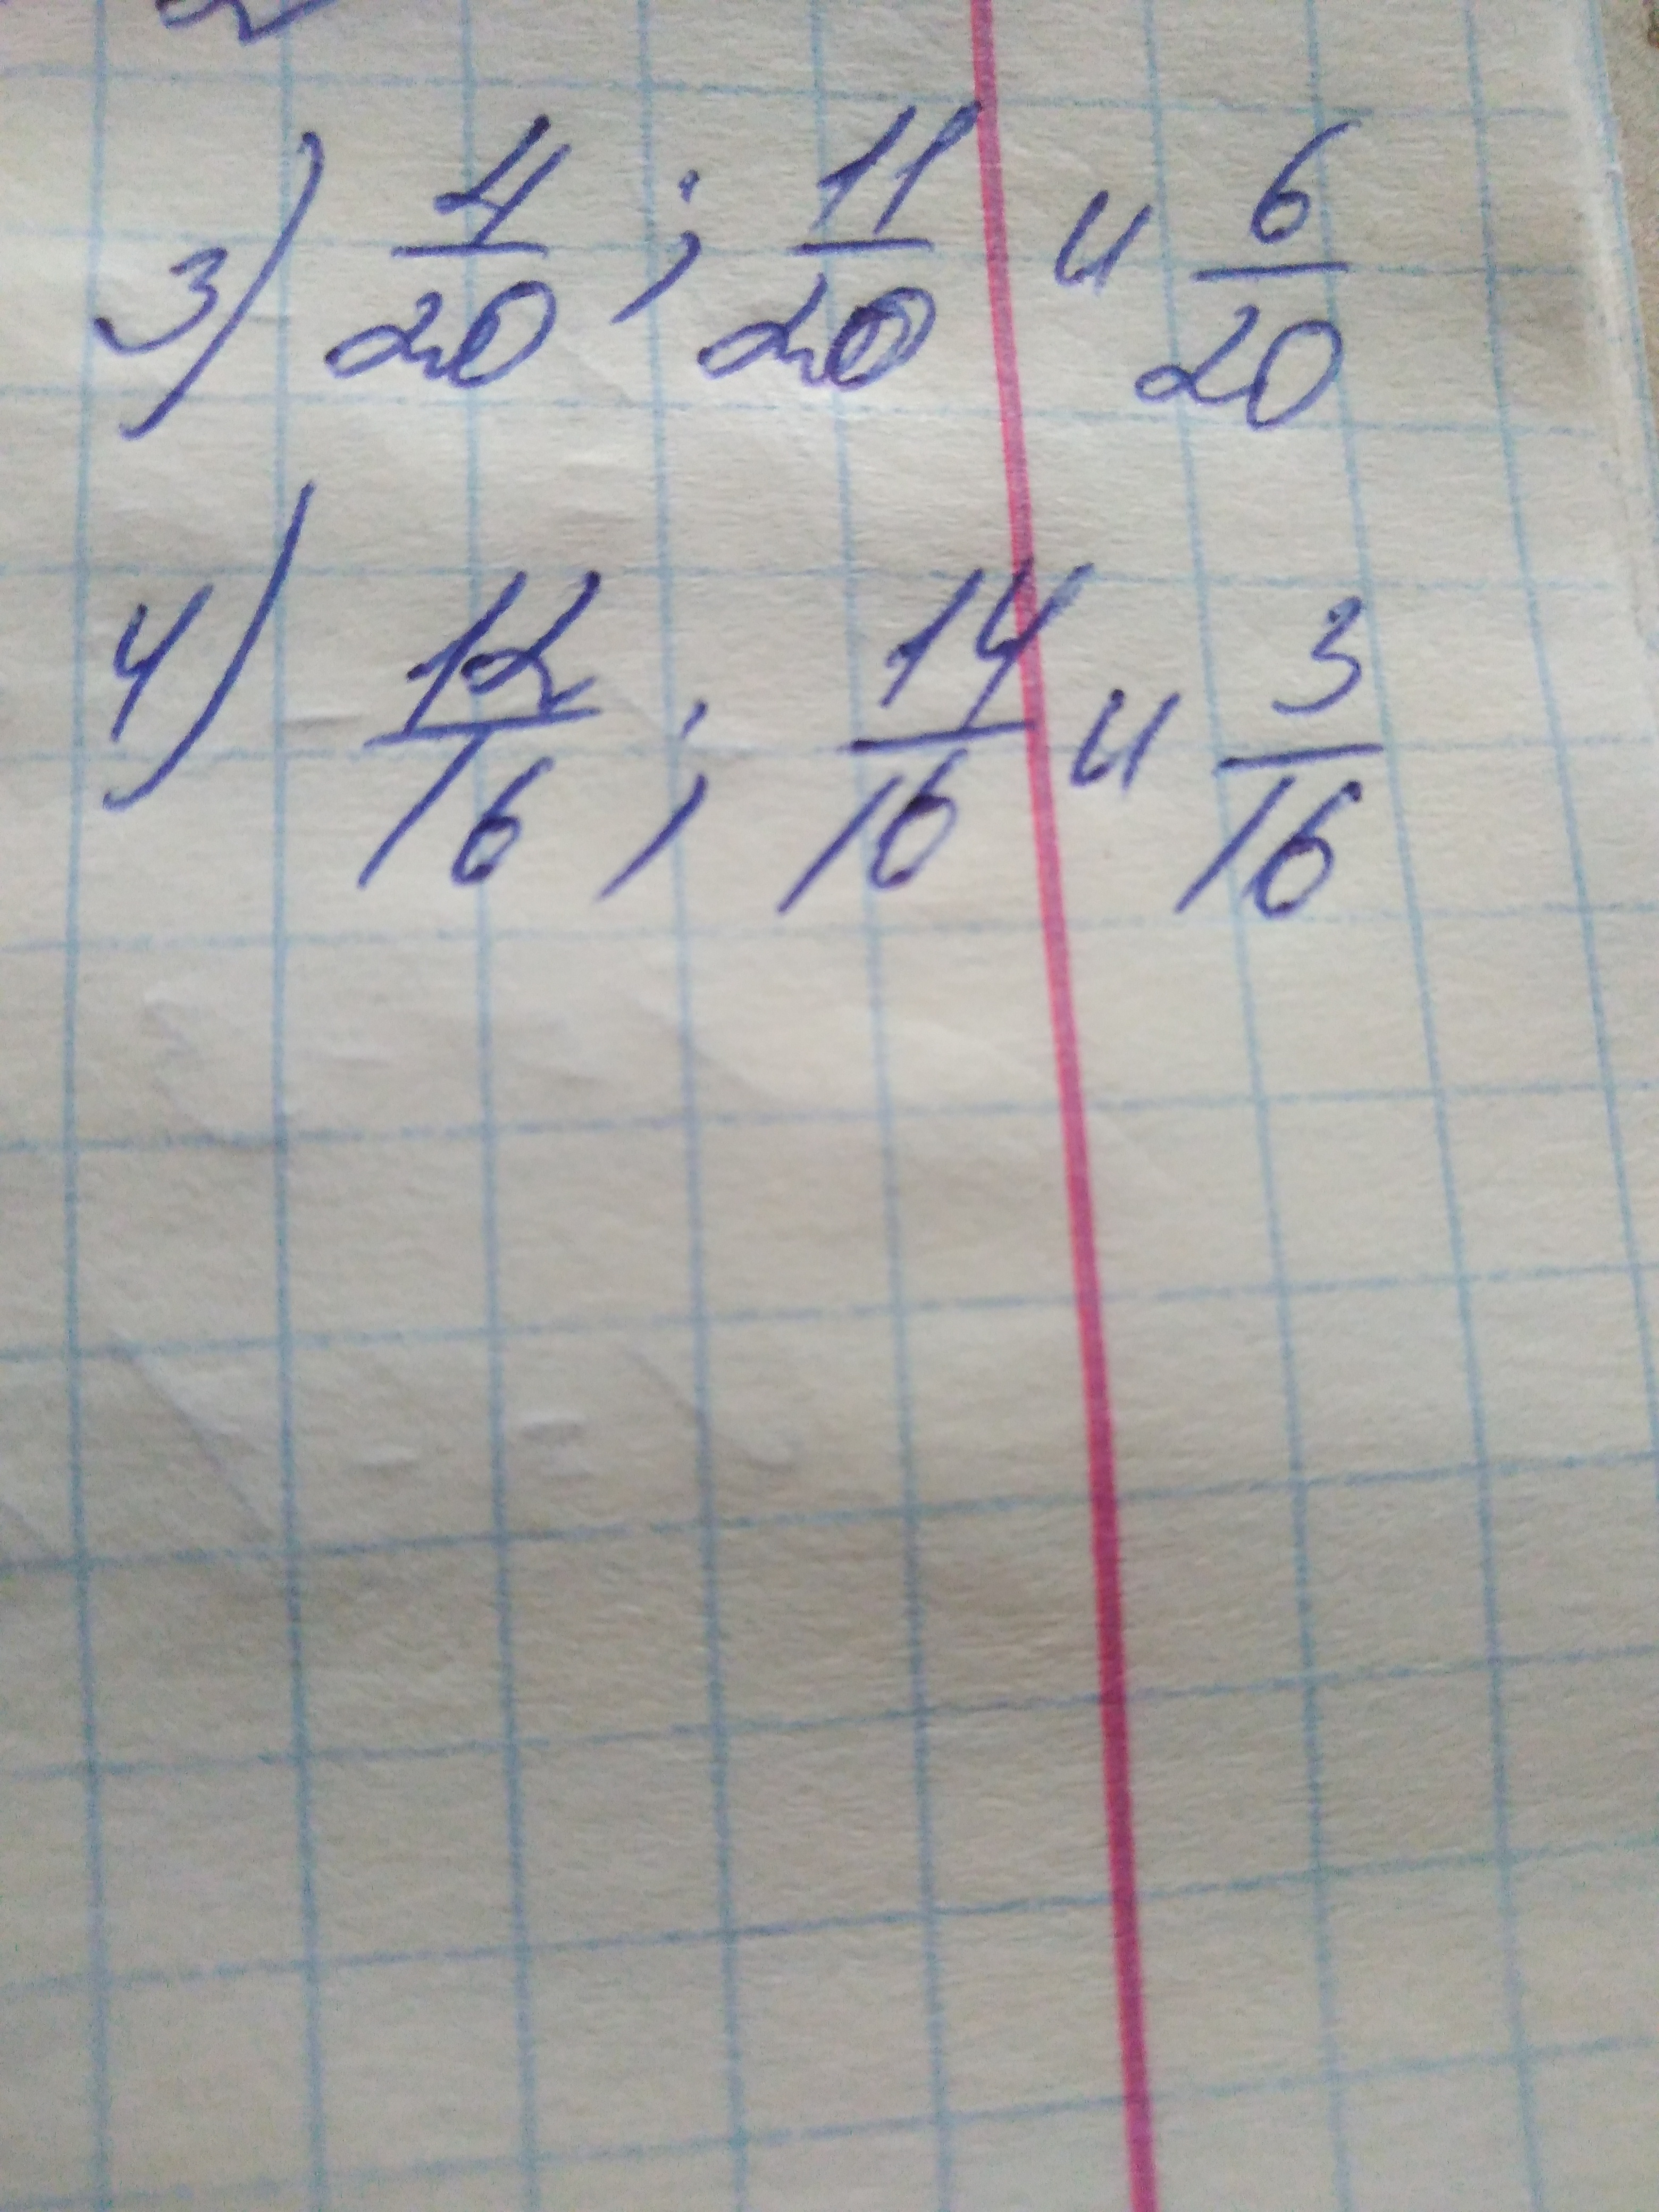 3) 4/20 ; 11/20 и 6/20
4) 12/16 ; 14/16 и 3/16